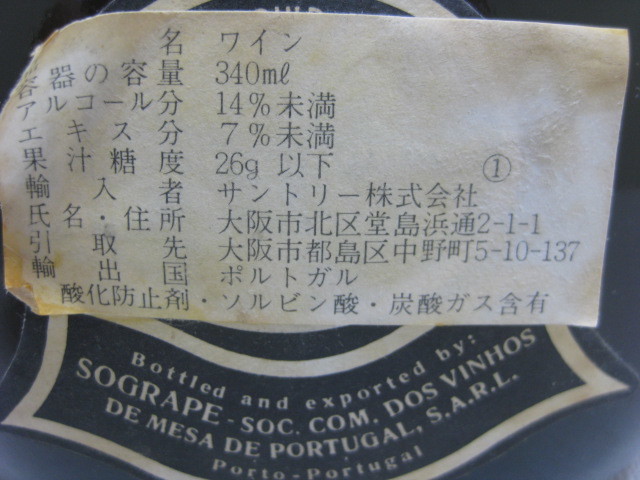 名 ワイン
容器の容量 340ml
アルコール分 14%未満
エキス分 7%未満
果汁糖度 26g 以下
①
輸入者 サントリー株式会社
氏名・住所 大阪市北区堂島浜通2-1-1
引取先 大阪市都島区中野町5-10-137
輸出国 ポルトガル
酸化防止剤・ソルビン酸・炭酸ガス含有
Bottled and exported by:
SOGRAPE - SOC. COM. DOS VINHOS
DE MESA DE PORTUGAL, S.A.R.L.
Porto-Portugal